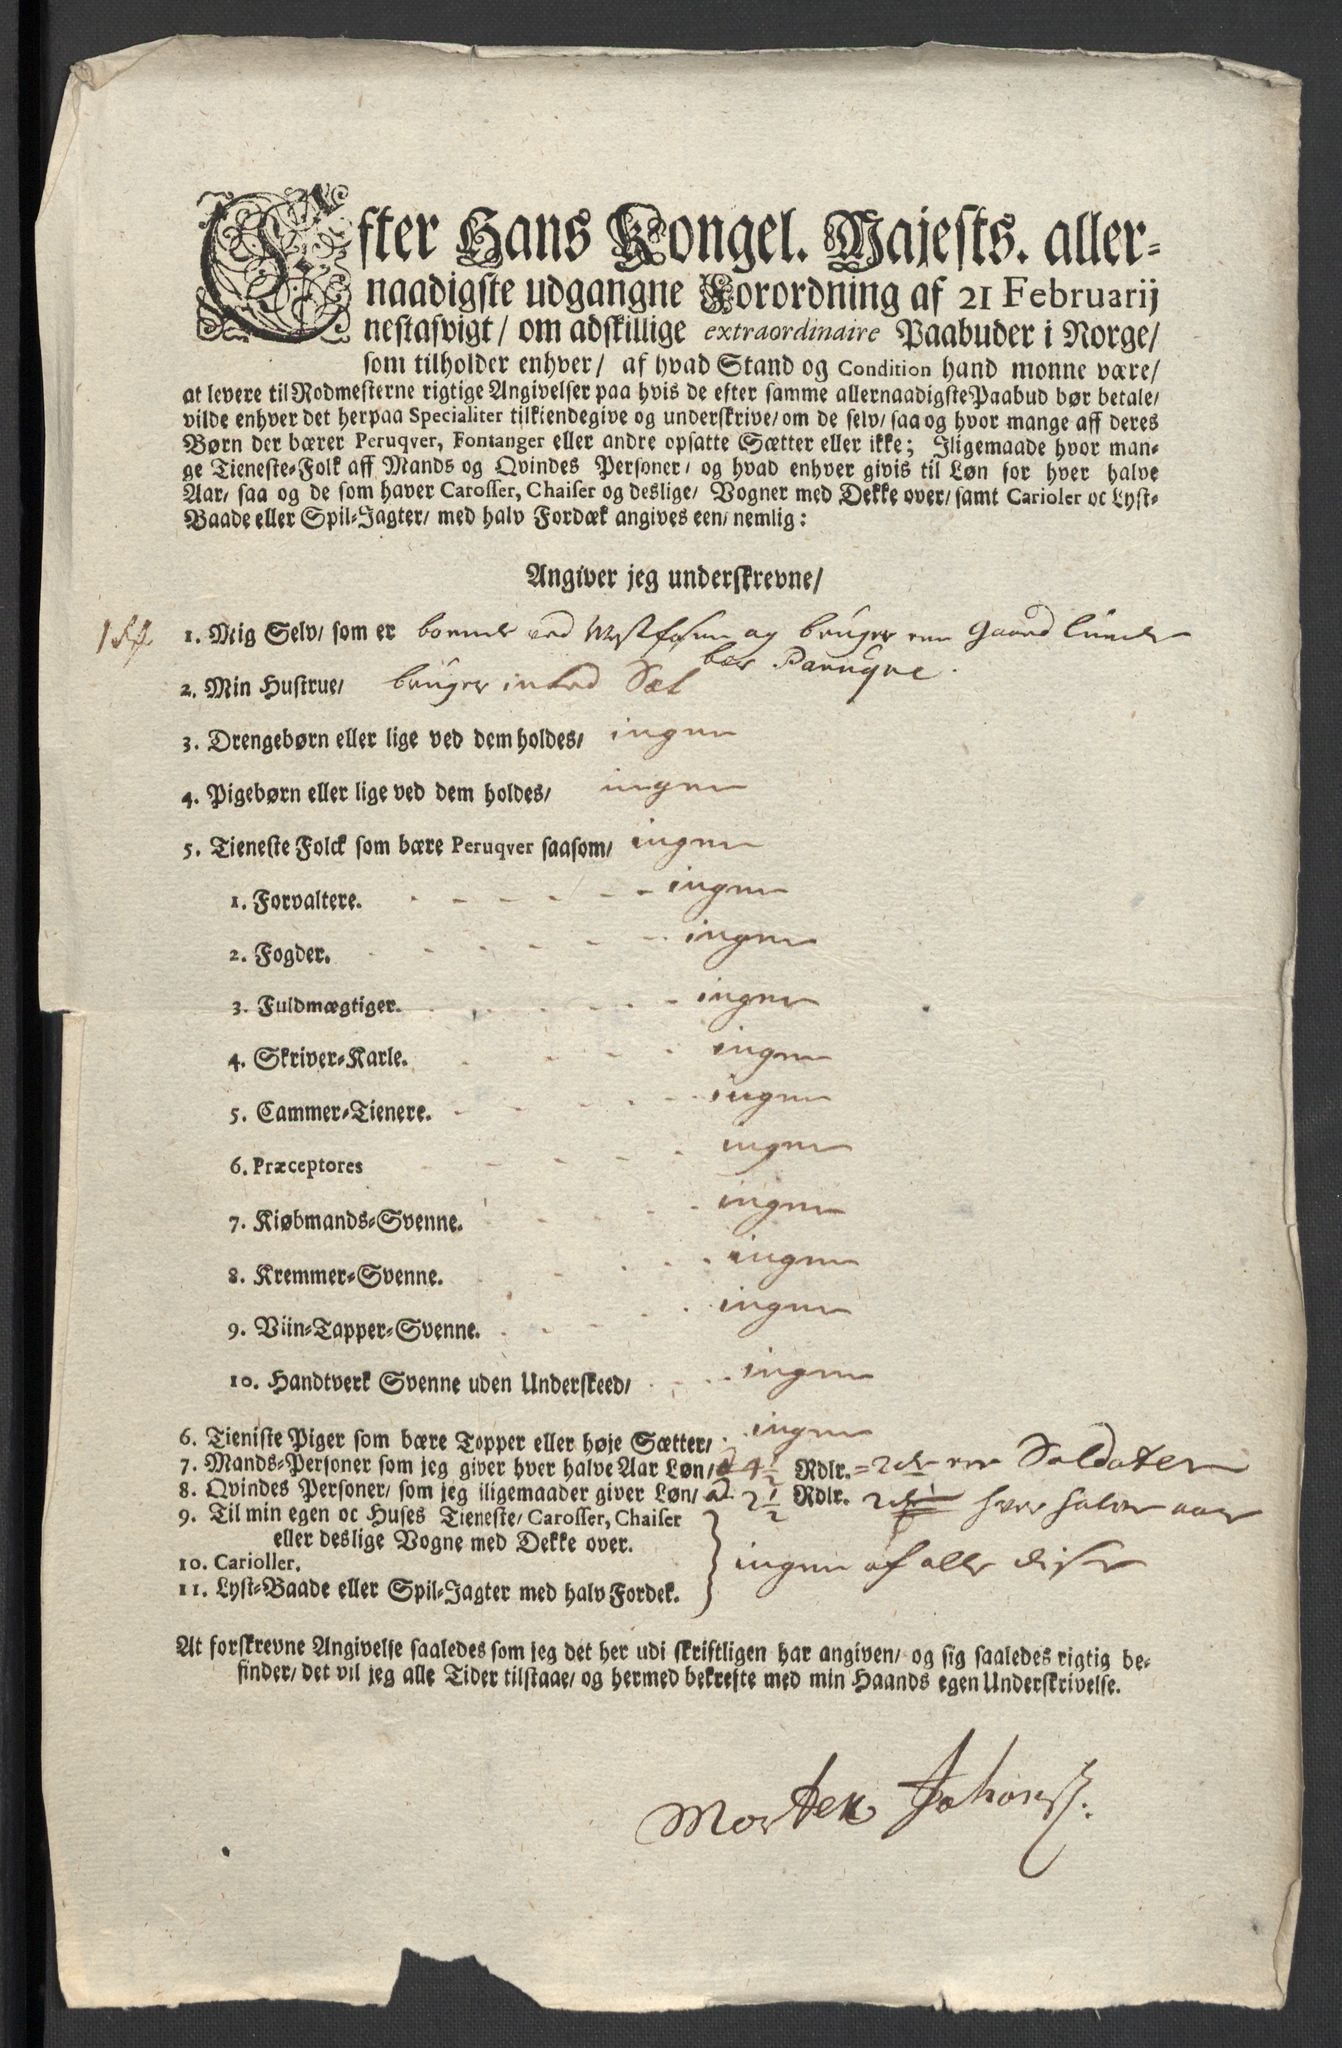 Efter Hans Kongel. Majests. aller-
naadigste udgangne Forordning af 21 Februarij
nestafvigt/ om adskillige extraordinaire Paabuder i Norge/
som tilholder enhver/ af hvad Stand og Condition hand monne være/
at levere til Rodmesterne rigtige Angivelser paa hvis de efter samme allernaadigste Paabud bør betale/
vilde enhver det herpaa Specialiter tilkiendegive og underskrive/ om de selv/ saa og hvor mange aff deres
Børn der bærer Peruqver, Fontanger eller andre opsatte Sætter eller ikke; Iligemaade hvor man-
ge Tieneste-Folk aff Mands og Qvindes Personer/ og hvad enhver givis til Løn for hver halve
Aar/ saa og de som haver Carosser, Chaiser og deslige/ Vogner med Dekke over/ samt Carioler oc Lyst-
Baade eller Spil-Jagter/ med halv Fordæk angives een/ nemlig:
Angiver jeg underskrevne/
1. Mig Selv/ som er boende ved og bruger een Gaard
bær Paruqve.
2. Min Hustrue/ bruger inted Sæt
3. Drengebørn eller lige ved dem holdes/ ingen
4. Pigebørn eller lige ved dem holdes/ ingen
5. Tieneste Folck som bære Peruqver saasom/ ingen
1. Forvaltere. ingen
2. Fogder. ingen
3. Fuldmægtiger. ingen
4. Skriver-Karle. ingen
5. Cammer-Tienere. ingen
6. Præceptores ingen
7. Kiøbmands-Svenne. ingen
8. Kremmer-Svenne. ingen
9. Viin-Tapper-Svenne. ingen
10. Handtverk Svenne uden Underskeed/ ingen
6. Tieniste Piger som bære Topper eller høje Sætter/ ingen
7. Mands-Personer som jeg giver hver halve Aar Løn/ 4 1/2 Rdlr. = 2de Soldater
8. Qvindes Personer/ som jeg iligemaader giver Løn/ a 2 1/2 Rdlr. hver halve aar
9. Til min egen oc Huses Tieneste/ Carosser, Chaiser
eller deslige Vogne med Dekke over.
10. Carioller. ingen af alle disse
11. Lyst-Baade eller Spil-Jagter med halv Fordek.
At forskrevne Angivelse saaledes som jeg det her udi skriftligen har angiven/ og sig saaledes rigtig be-
finder/ det vil jeg alle Tider tilstaae/ og hermed bekrefte med min Haands egen Underskrivelse.
Morten